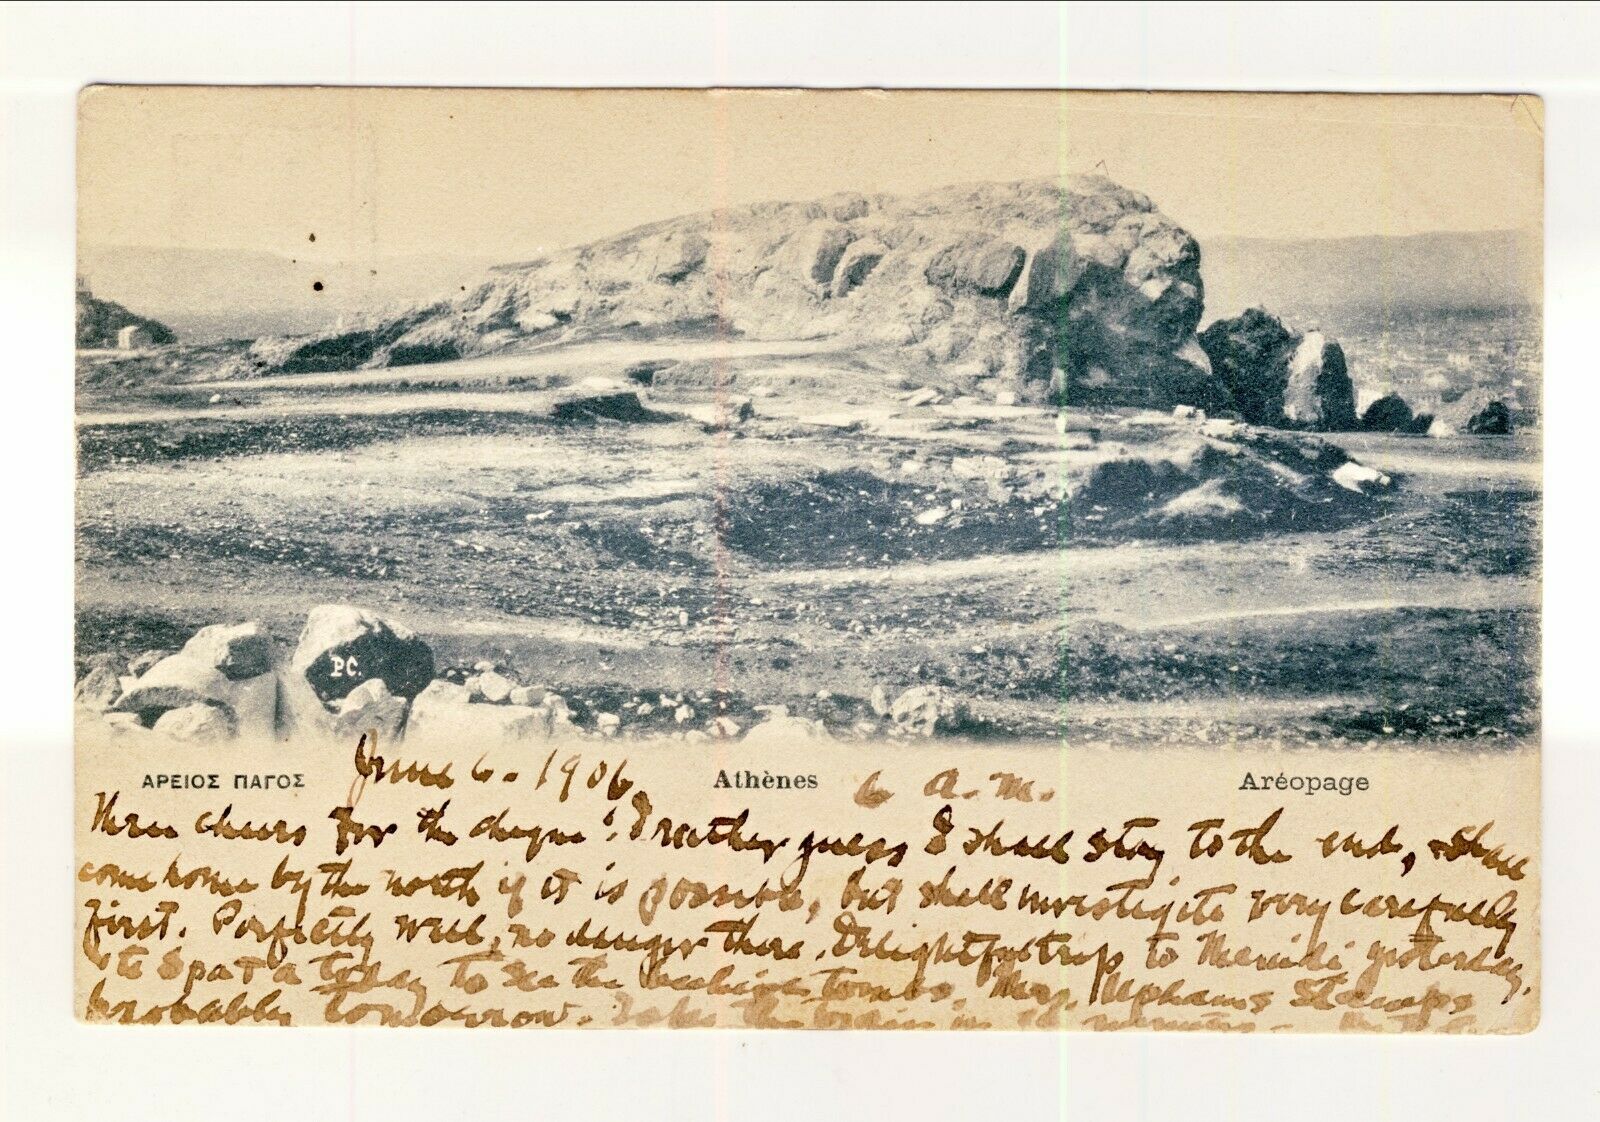 P.C.
ΑΡΕΙΟΣ ΠΑΓΟΣ
Athènes
Aréopage
June 6. 1906. 6 a.m.
Three cheers for the cheque! I rather guess I shall stay to the end, & shall
come home by the north if it is possible, but shall investigate very carefully
first. Perfectly well, no danger there. Delightful trip to Menidi yesterday,
to Sparta today to see the beehive tombs. Mrs. Uphams Stamps
probably tomorrow. Take the train in 10 minutes.